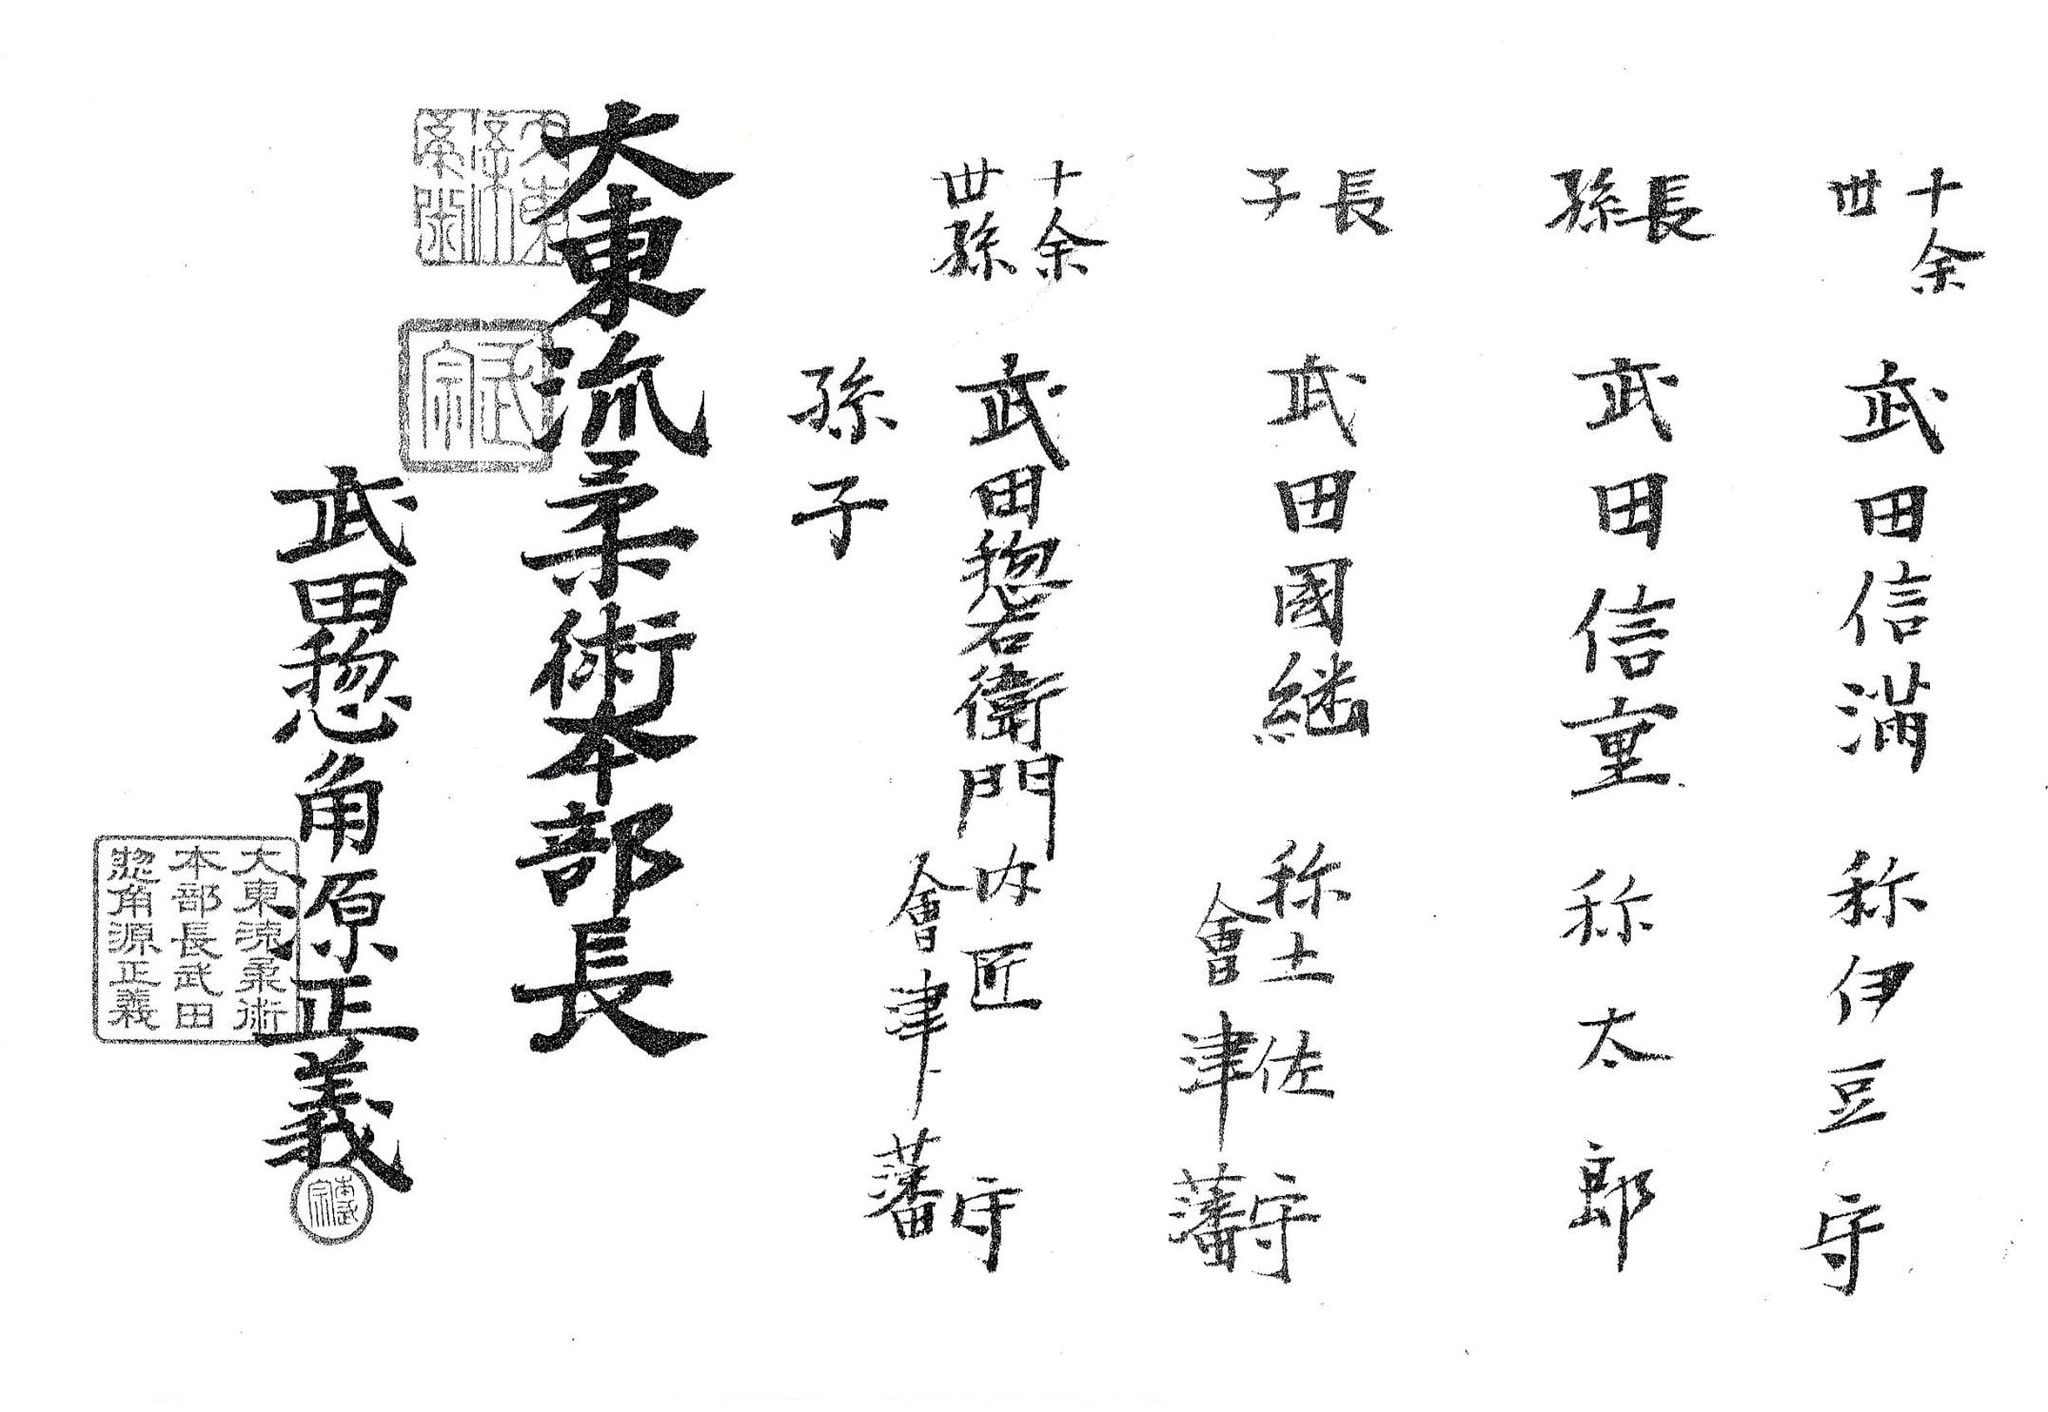 十余世 武田信満 称伊豆守
長孫 武田信重 称太郎
長子 武田國継 称土佐守
會津藩
十余世孫 武田惣右衛門 内匠守
會津藩
孫子
大東流柔術本部長
武田惣角源正義
大東流柔術
本部長武田
惣角源正義
武宗